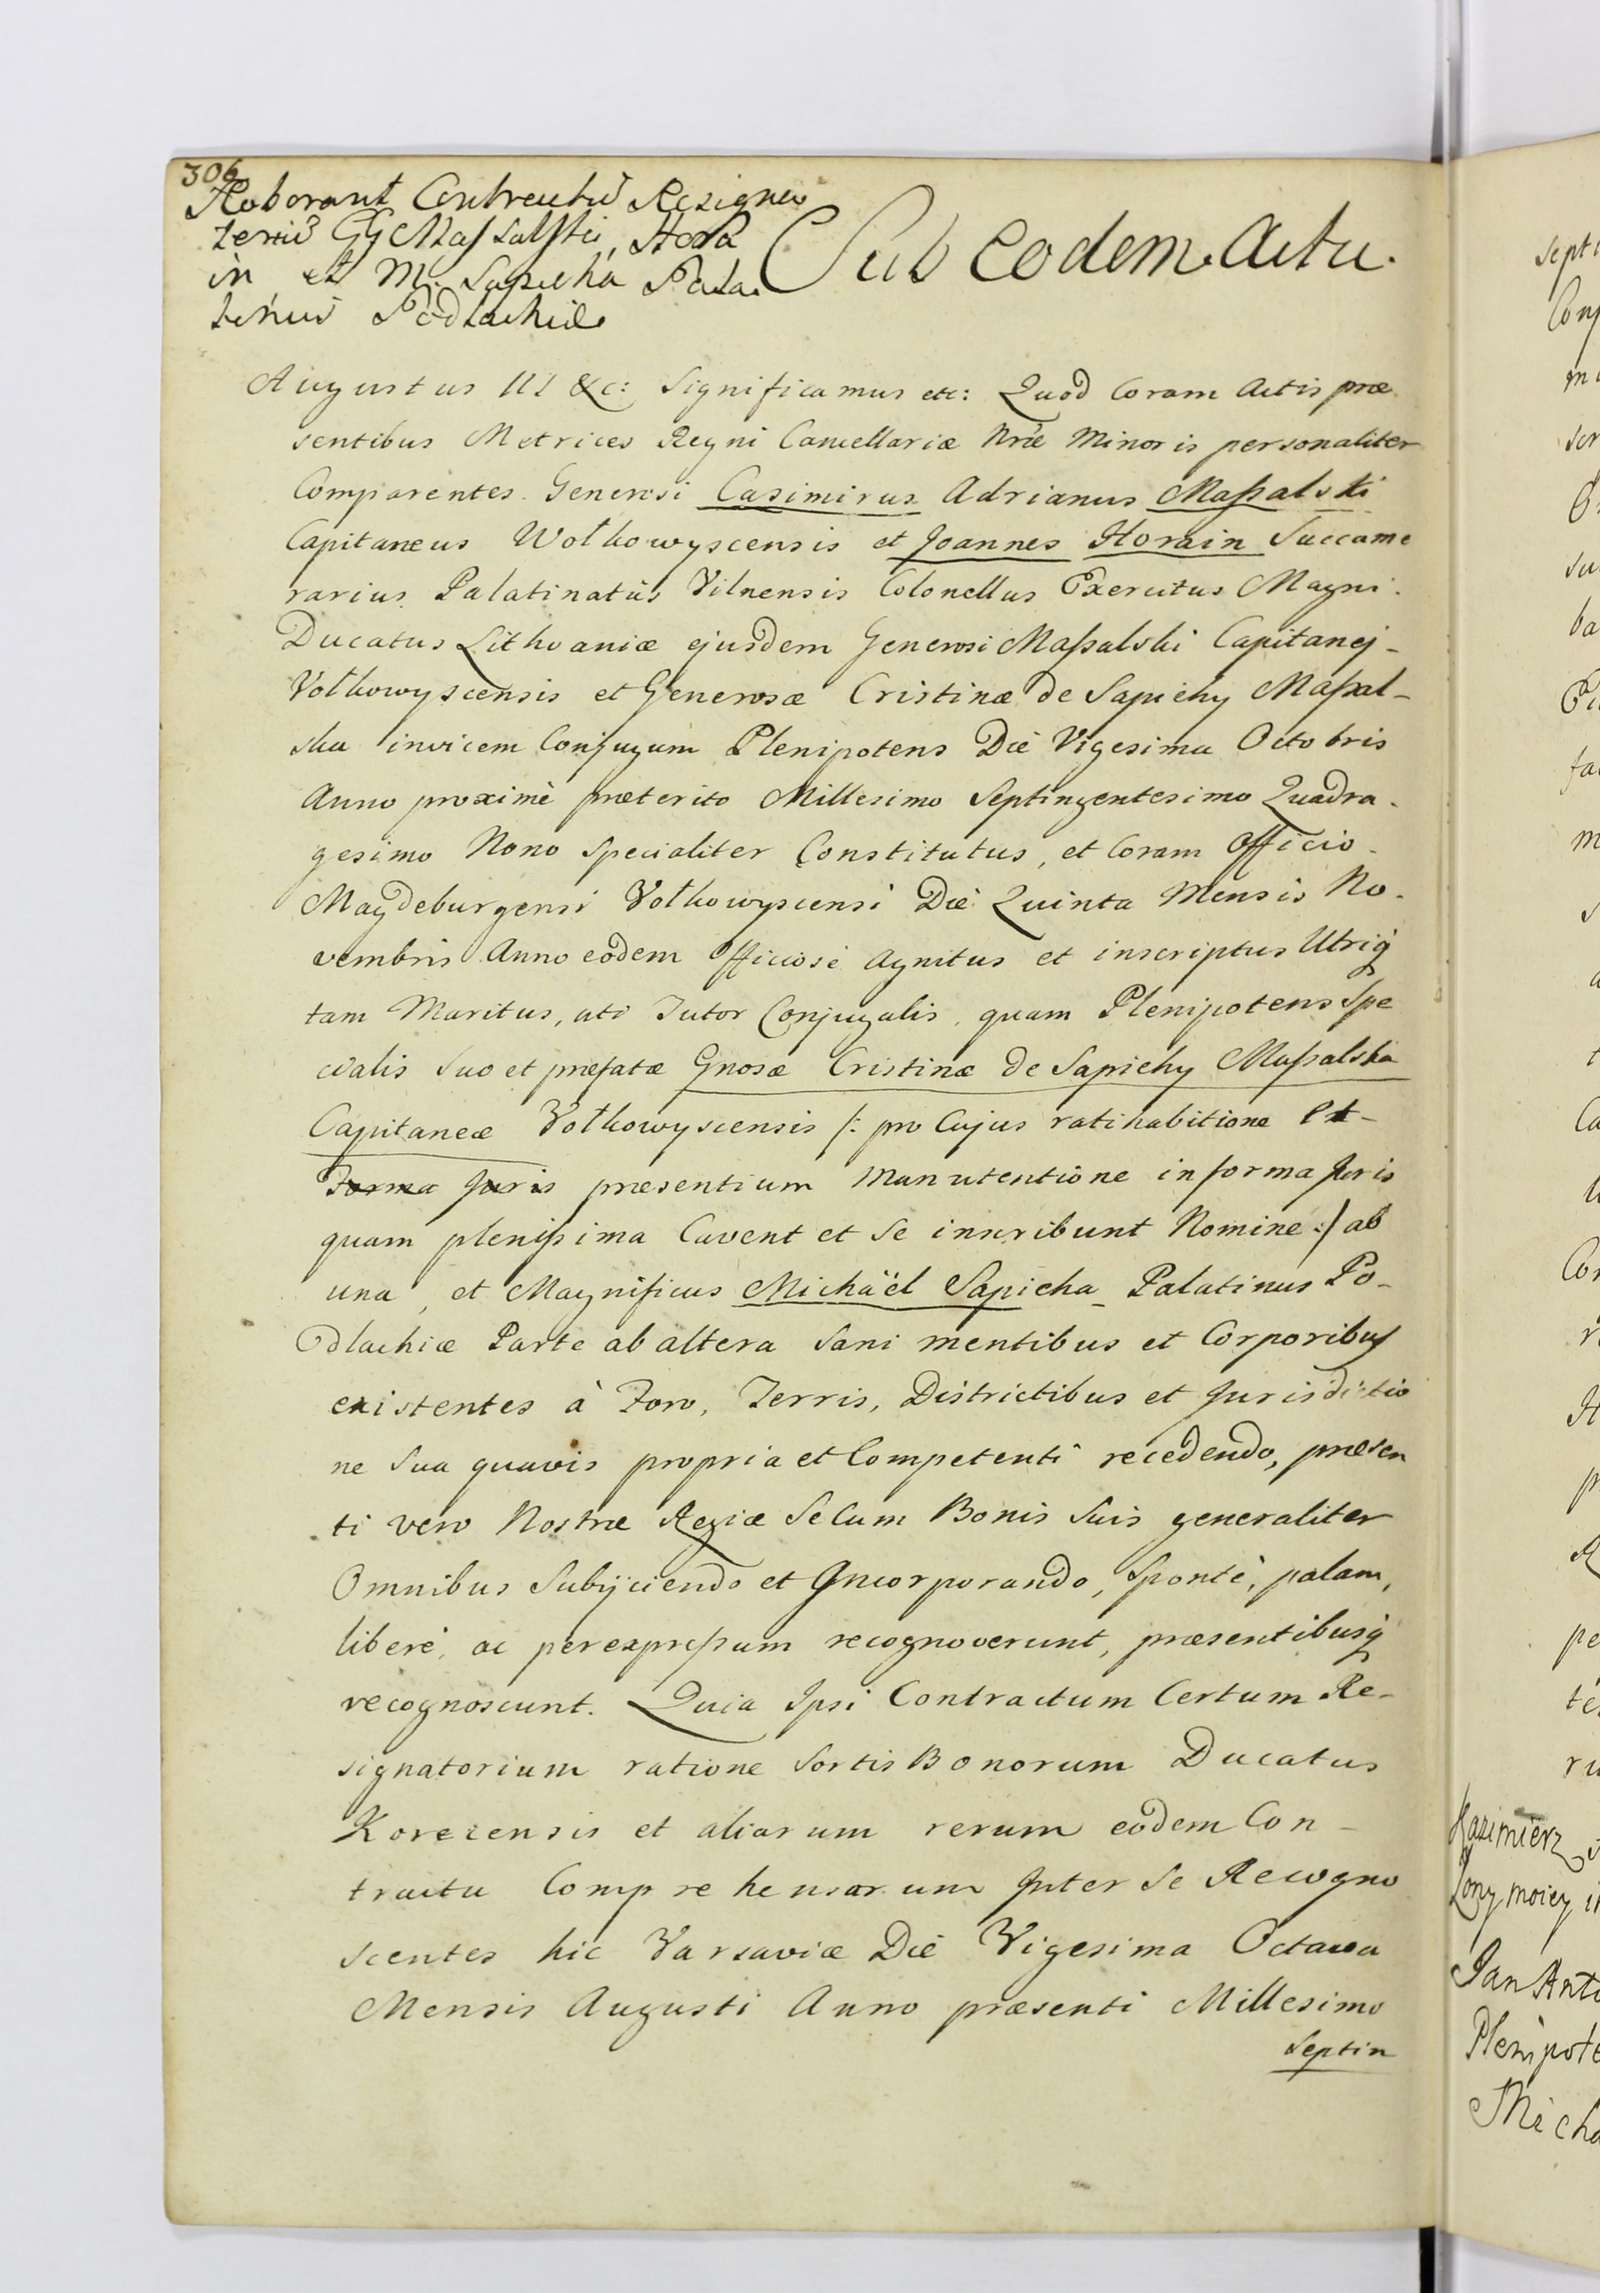 306
Roborant Contractus Resigna
torius GG Massalski, Hora
in et M. Sapieha Pala
tinus Podlachiæ
Sub eodem Actu.
Augustus III &c: Significamus etc: Quod Coram Actis præ
sentibus Metrices Regni Cancellariæ Nræ Minoris personaliter
Comparentes Generosi Casimirus Adrianus Massalski
Capitaneus Wołkowyscensis et Joannes Horain Succame
rarius Palatinatûs Vilnensis Colonellus Exercitus Magni
Ducatus Lithvaniæ ejusdem Generosi Massalski Capitanej
Vołkowyscensis et Generosæ Cristinæ de Sapiehy Massal-
ska invicem Conjugum Plenipotens Diè Vigesima Octobris
Anno proximè præterito Millesimo Septingentesimo Quadra-
gesimo Nono Specialiter Constitutus, et Coram Officio
Magdeburgensi Vołkowyscensi Diè Quinta Mensis No-
vembris Anno eodem Officiosè Agnitus et inscriptus Utriq
tam Maritus, uti Tutor Conjugalis, quam Plenipotens Spe
cialis Suo et præfatæ Gnosæ Cristinæ de Sapiehy Massalska
Capitaneæ Vołkowyscensis /: pro Cujus ratihabitione et
Forma Juris præsentium Manutentione in forma Juris
quam plenissima Cavent et Se inscribunt Nomine :/ ab
una, et Magnificus Michaël Sapieha Palatinus Po-
dlachiæ Parte ab altera Sani mentibus et Corporibus
existentes à Foro, Terris, Districtibus et Jurisdictio
ne Sua quavis propria et Competenti recedendo, præsen
ti vero Nostræ Regiæ Se Cum Bonis Suis generaliter
Omnibus Subijciendo et Incorporando, Spontè, palam,
liberè, ac per expressum recognoverunt, præsentibusq
recognoscunt. Quia Ipsi Contractum Certum Re-
signatorium ratione Sortis Bonorum Ducatus
Korecensis et aliarum rerum eodem Con-
tractu Comprehensarum Inter Se Recogno
scentes hic Varsaviæ Diè Vigesima Octava
Mensis Augusti Anno præsenti Millesimo
Septin
Kazimierz
Jan Anto
Plenipote
Micha